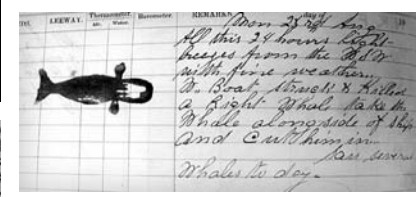 LEEWAY. Thermometer. Barometer. REMARKS
Air. Water.
Mon 23rd Aug
All this 24 hours light
breezes from the
with fine weather.
Boat struck & killed
a Right Whale take the
Whale alongside of Ship
and Cutt him in
Saw several
Whales to day.